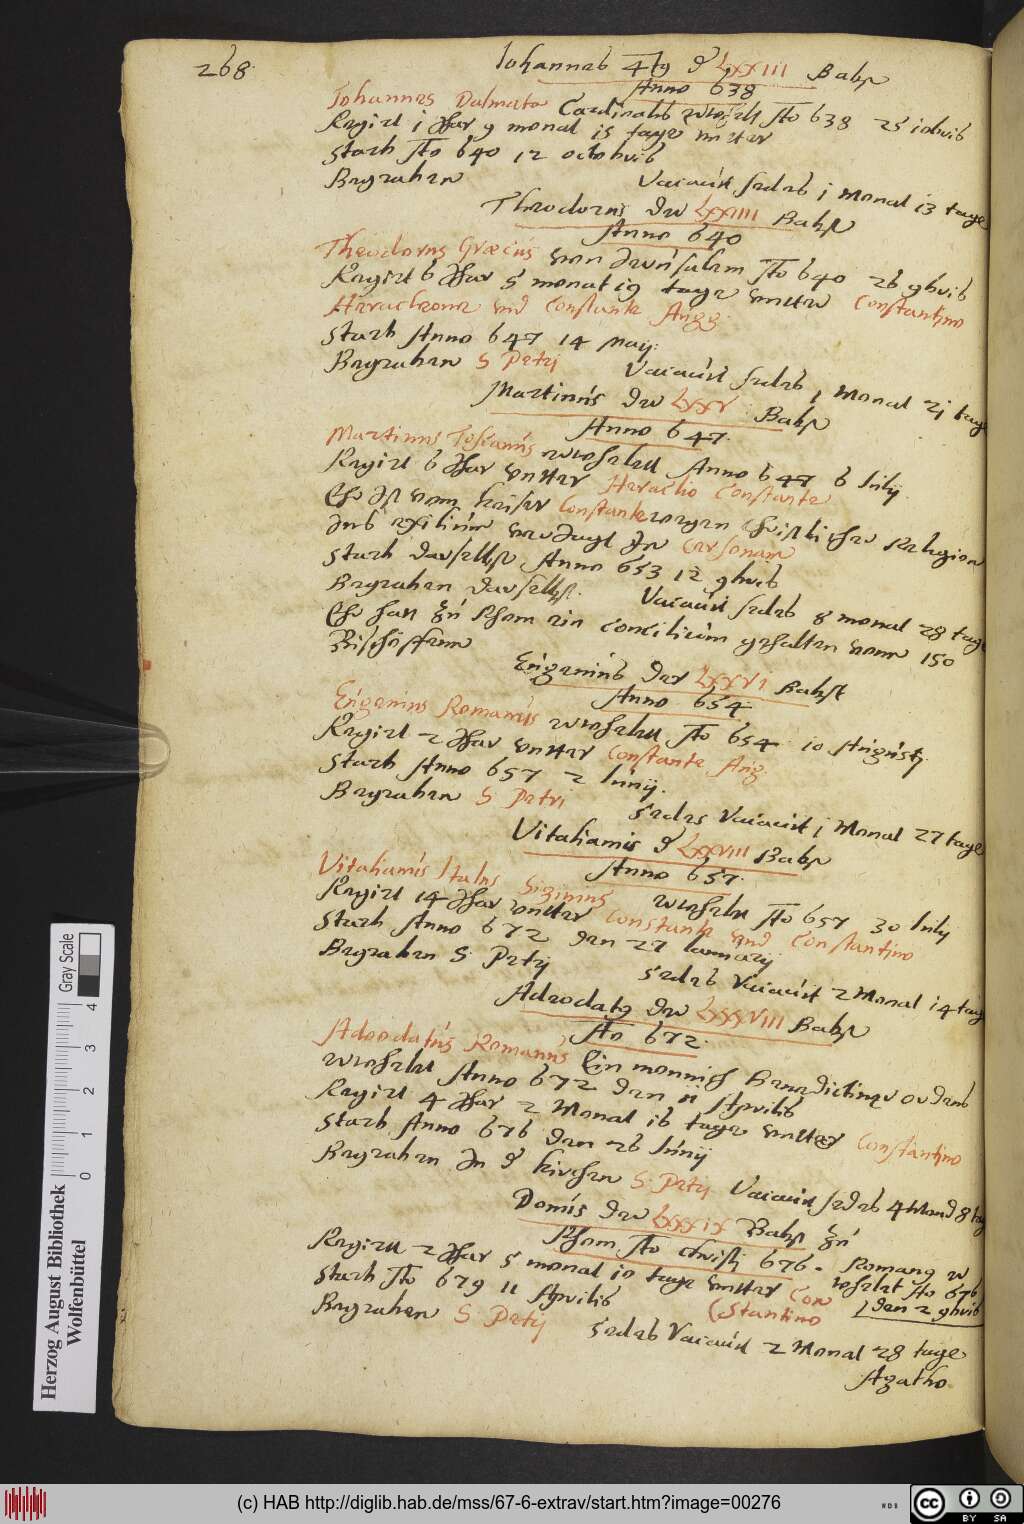 268.
Johannes 4tg d LXXIII Babst
Anno 638
Johannes Dalmata Cardinalis erwehlett Ao 638 25 iobris
Regirt i Jhar 9 monat 15 tage unter
Starb Ao 640 12 octobris
Begraben
Vaciaùit sedes i Monat 13 tage
Theodorus der LXXIIII Babst
Anno 640
Theodorus Græcus von Jerùsalem Ao 640 26 9bris
Regirt 6 Jhar 5 monat 19 tage untter Constantino
Heracleone und Constante Augg:
Starb Anno 647 14 May:
Begraben S Petrj
Vaciaùit sedes i Monat 2i tage
Martinus der LXXV Babst
Anno 647.
Martinus Toscanùs erwehlett Anno 647 6 Julij
Regirt 6 Jhar untter Heraclio Constante
Ehr ist vom keiser Constante wegen christlicher Religion
Ins exilium verJagt In Cersonam
Starb daselbst Anno 653 12 9bris
Begraben daselbst.
Vaciaùit sedes 8 monat 28 tage
Ehr hatt zù Rhom ein concilium gehalten vonn 150
Bischöffenn
Eùgenius der LXXVI Babst
Anno 654
Eùgenius Romanùs erwehlett Ao 654 10 Aùgùstj
Regirt 2 Jhar untter Constante Aùg
Starb Anno 657 2 Iùnij.
Begraben S Petri
Sedes Vaciaùit i Monat 27 tage
Vitalianùs d LXXVIII Babst
Anno 657.
Vitalianùs Italus Siginius erwehlett Ao 657 30 Iuly
Regirt 14 Jhar untter Constante und Constantino
Starb Anno 672 den 27 Iannarij
Begraben S: Petrj
Sedes Vaciaùit 2 Monat 14 tage
Adeodatg der LXXXVIII Babst
Ao 672.
Adeodatùs Romanùs Ein monnich Benedictiner ordens
erwehlett Anno 672 den 11 Aprilis
Regirt 4 Jhar 2 Monat 16 tage untter Constantino
Starb Anno 676 den 26 Iùnij
Begraben In d kirchen S: Petrj
Vaciaùit sedes 4 Monad 8 tag
Domùs der LXXXIX Babst zù
Rhom Ao christj 676. Romang er
wehlet Ao 676
den 2 9bris
Regirtt 2 Jhar 5 monat 10 tage untter Con
stantino
Starb Ao 679 11 Aprilis
Begraben S Petrj
Sedes Vaciaùit 2 Monat 28 tage
Agatho
Herzog August Bibliothek
Wolfenbüttel
Gray Scale
0 1 2 3 4
(c) HAB http://diglib.hab.de/mss/67-6-extrav/start.htm?image=00276
WDB
cc BY SA